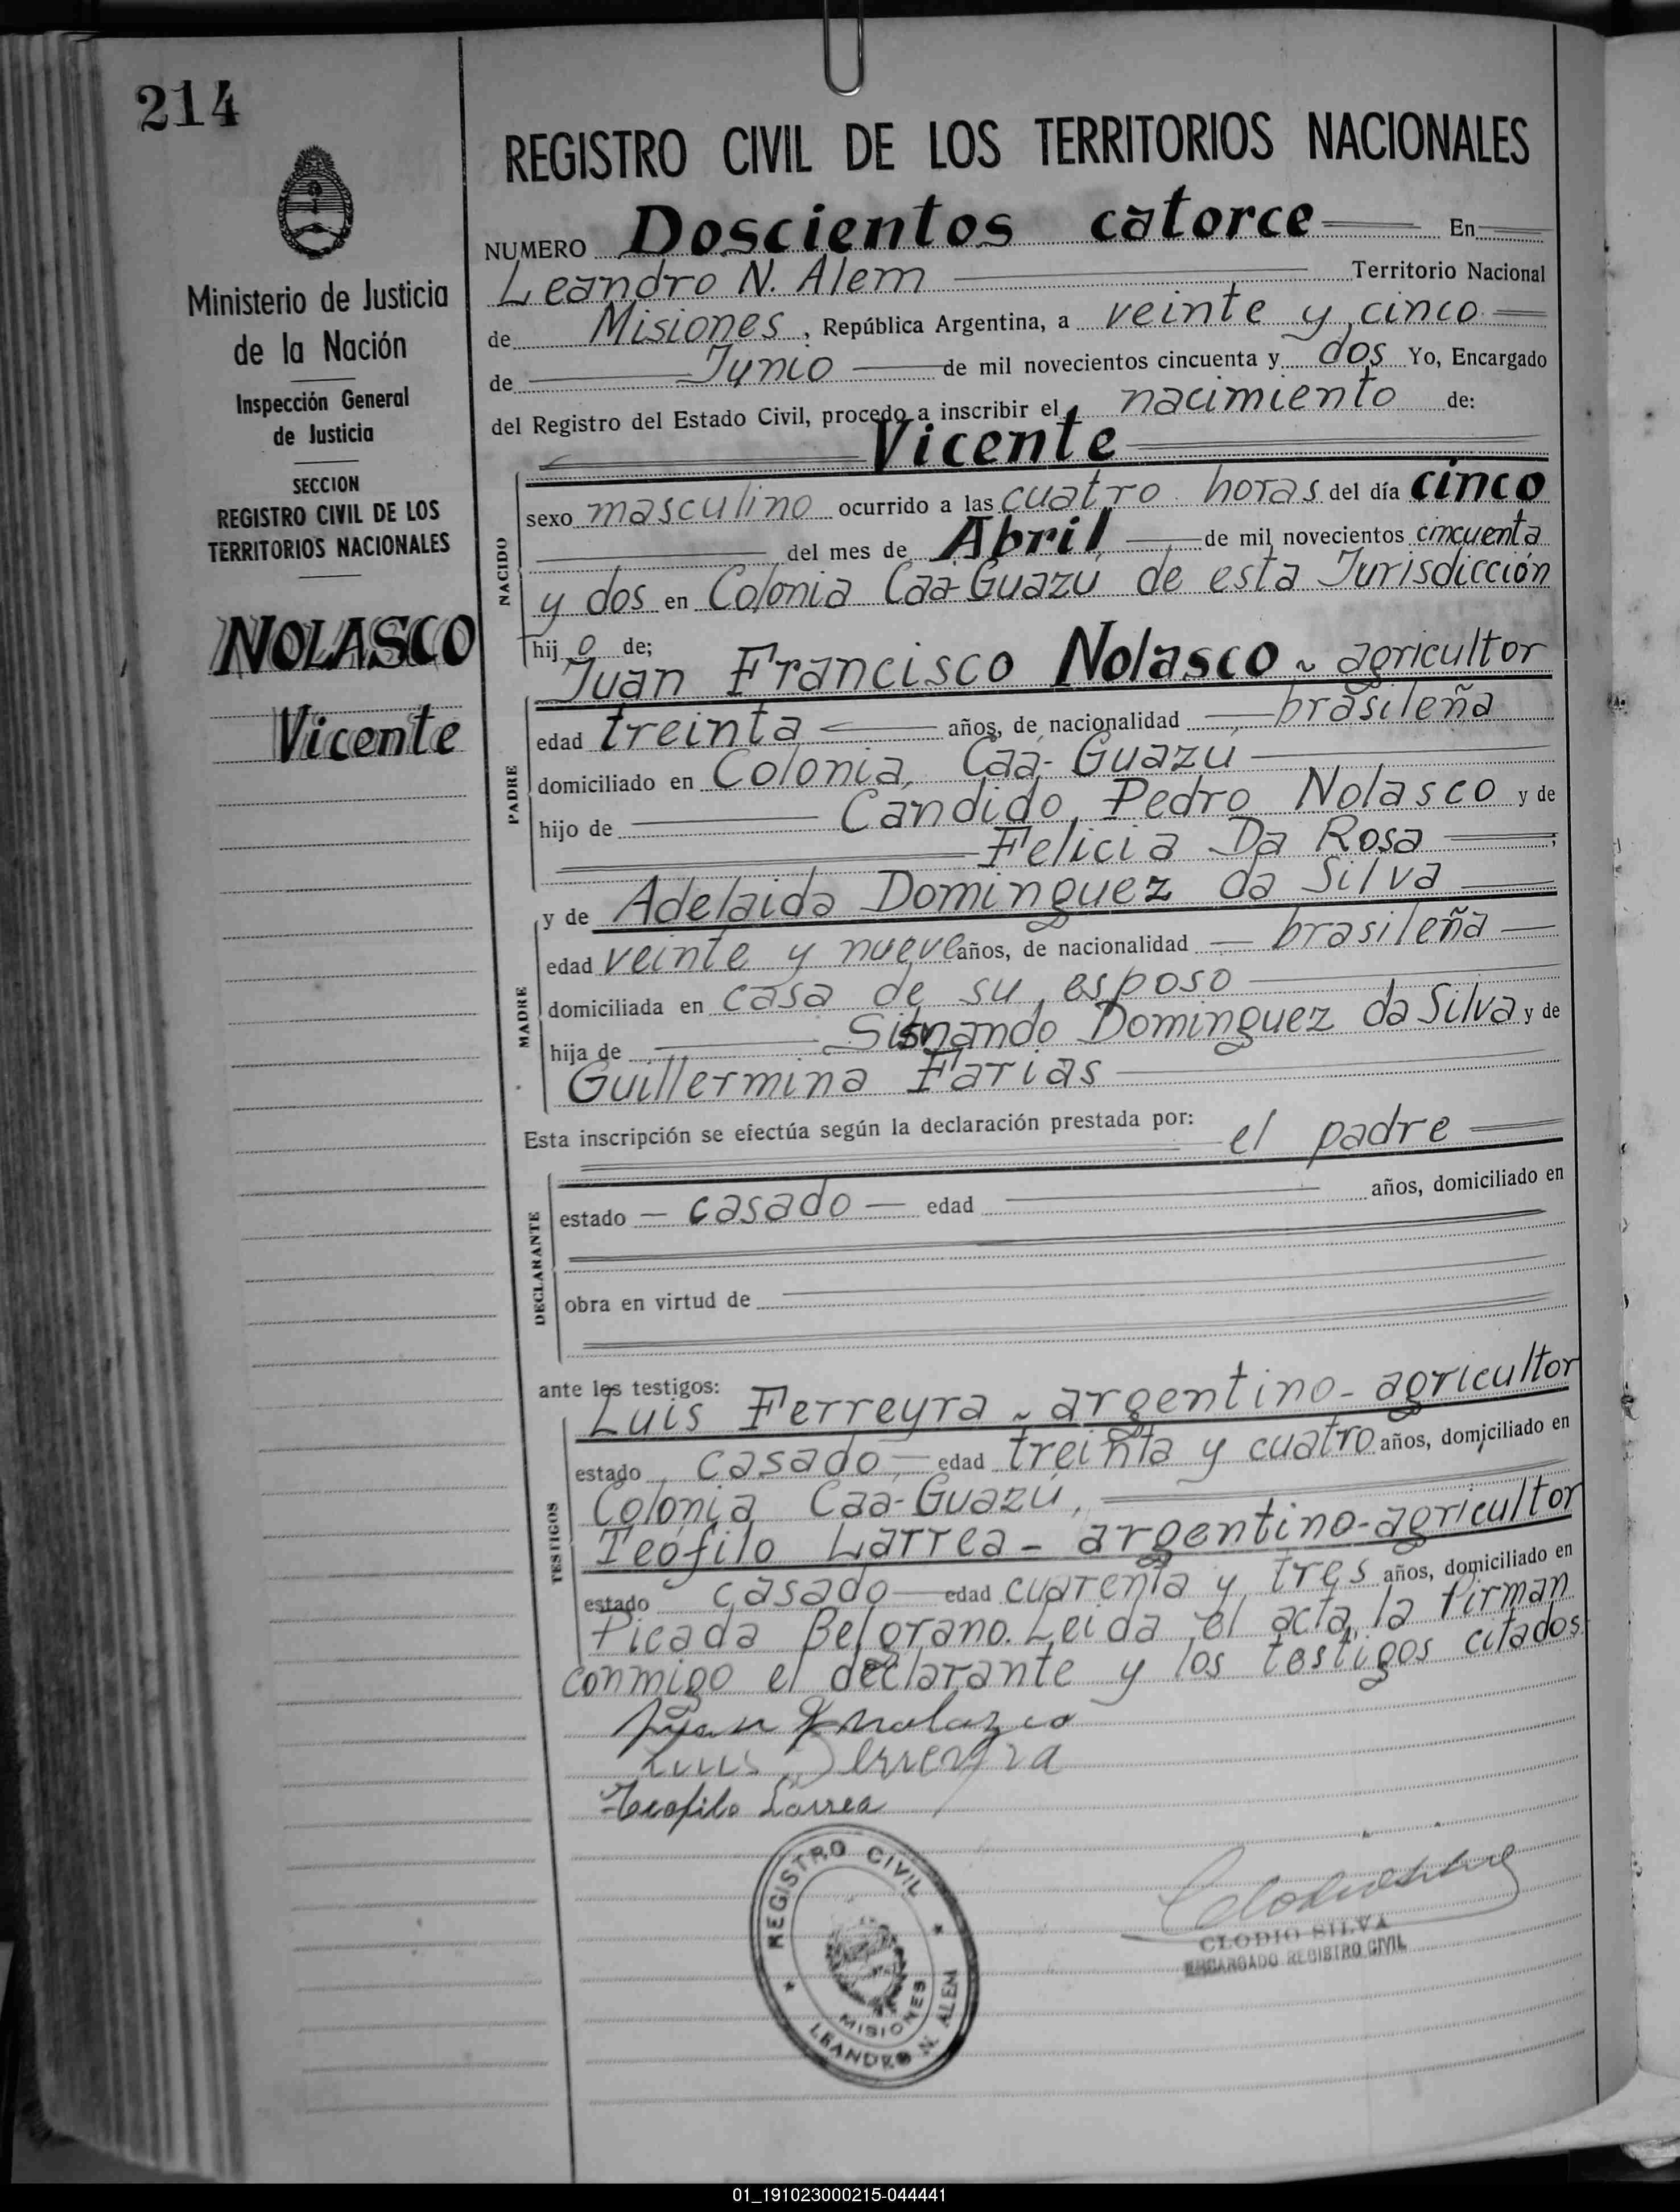 214
Ministerio de Justicia
de la Nación
Inspección General
de Justicia
SECCION
REGISTRO CIVIL DE LOS
TERRITORIOS NACIONALES
NOLASCO
Vicente
REGISTRO CIVIL DE LOS TERRITORIOS NACIONALES
NUMERO Doscientos catorce En
Leandro N. Alem Territorio Nacional
de Misiones, República Argentina, a veinte y cinco
de Junio de mil novecientos cincuenta y dos Yo, Encargado
del Registro del Estado Civil, procedo a inscribir el nacimiento de:
Vicente
NACIDO
sexo masculino ocurrido a las cuatro horas del día cinco
del mes de Abril de mil novecientos cincuenta
y dos en Colonia Caa-Guazú de esta Jurisdicción
hijo de;
Juan Francisco Nolasco ~ agricultor
PADRE
edad treinta años, de nacionalidad brasileña
domiciliado en Colonia, Caa-Guazú
hijo de Candido Pedro Nolasco y de
Felicia Da Rosa ;
y de Adelaida Dominguez da Silva
MADRE
edad veinte y nueve años, de nacionalidad brasileña
domiciliada en casa de su esposo
hija de Dominguez da Silva y de
Guillermina Farias
Esta inscripción se efectúa según la declaración prestada por: el padre
DECLARANTE
estado casado edad años, domiciliado en
obra en virtud de
ante los testigos:
Luis Ferreyra ~ argentino - agricultor
TESTIGOS
estado casado, edad treinta y cuatro años, domiciliado en
Colonia Caa-Guazú,
Teófilo Larrea - argentino - agricultor
estado casado edad cuarenta y tres años, domiciliado en
Picada Belgrano. Leida el acta, la firman
conmigo el declarante y los testigos citados
Juan F nolazco
Luis Ferreyra
Teofilo Larrea
REGISTRO CIVIL
MISIONES
LEANDRO N. ALEM
CLODIO SILVA
ENCARGADO REGISTRO CIVIL
01_191023000215-044441